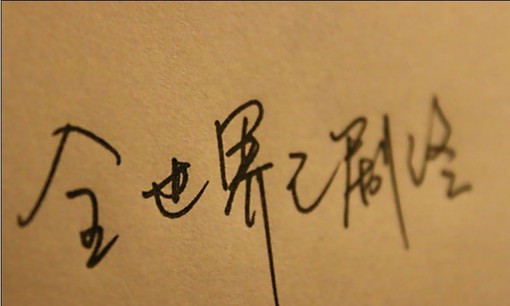 全世界之剧终